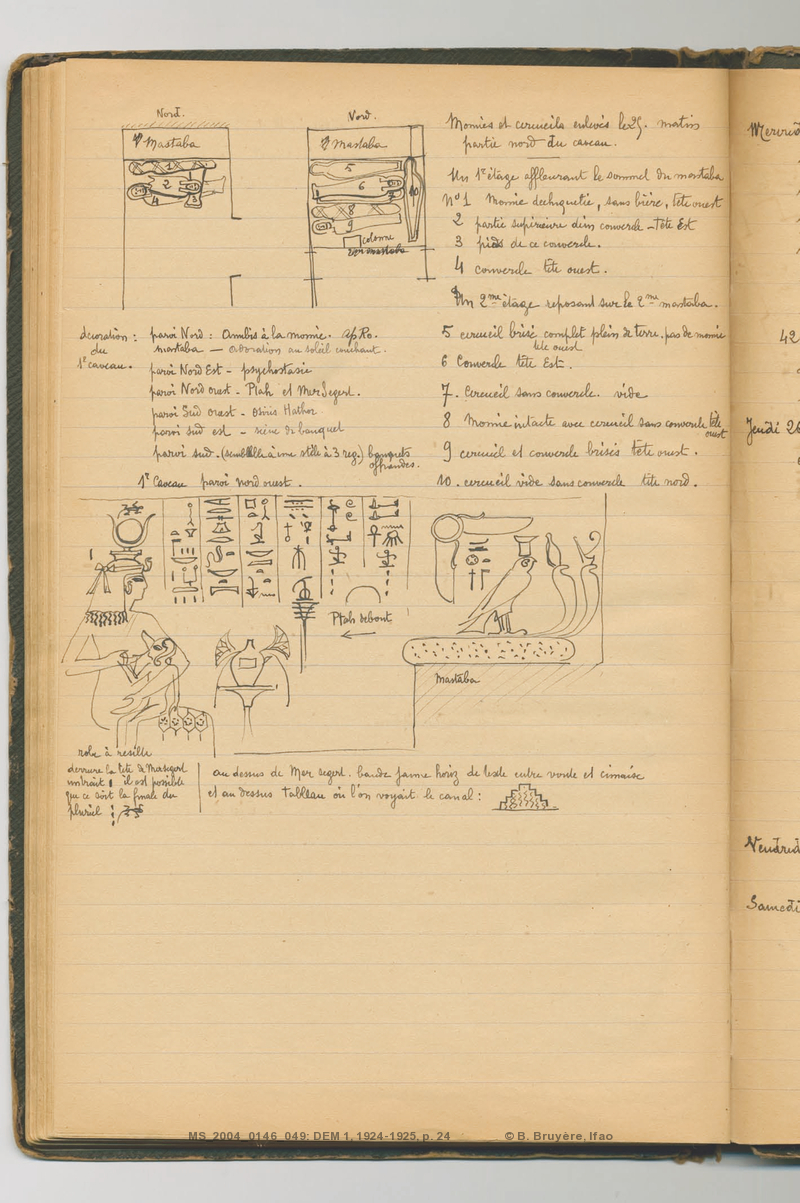 Nord.
Mastaba
1
2
3
4
Nord.
Mastaba
5
6
7
8
9
10
colonne
Momies et cercueils enlevés le 25. matin
partie nord du caveau.
Un 1er étage affleurant le sommet du mastaba
No 1 Momie dechiquetée, sans bière, tête ouest
2 partie supérieure d'un couvercle - Tête Est
3 pieds de ce couvercle.
4 couvercle tête ouest.
Un 2me étage reposant sur le 2me mastaba.
5 cercueil brisé complet plein de terre. pas de momie
tête ouest
6 Couvercle tête Est.
7. Cercueil sans couvercle. vide
8 Momie intacte avec cercueil sans couvercle tête
ouest
9 cercueil et couvercle brisés tête ouest.
10. cercueil vide sans couvercle tête nord.
décoration :
du
1er caveau.
paroi Nord : Anubis à la momie.
mastaba — adoration au soleil couchant.
paroi Nord Est - psychostasie
paroi Nord ouest - Ptah et MerSegert.
paroi Sud ouest - Osiris Hathor
paroi sud est - scène de banquet
paroi sud. (semblable à une stèle à 3 reg.) banquets
offrandes.
1er Caveau paroi nord ouest.
Ptah debout
Mastaba
robe à résille
derrière la tête de
un trait il est possible
que ce soit la finale du
pluriel
au dessus de Mer segert. bande jaune horiz de texte entre voute et cimaise
et au dessus tableau où l'on voyait le canal :
Mercred
42
Jeudi 26
Vendred
Samedi
MS_2004_0146_049: DEM 1, 1924-1925, p. 24
© B. Bruyère, Ifao